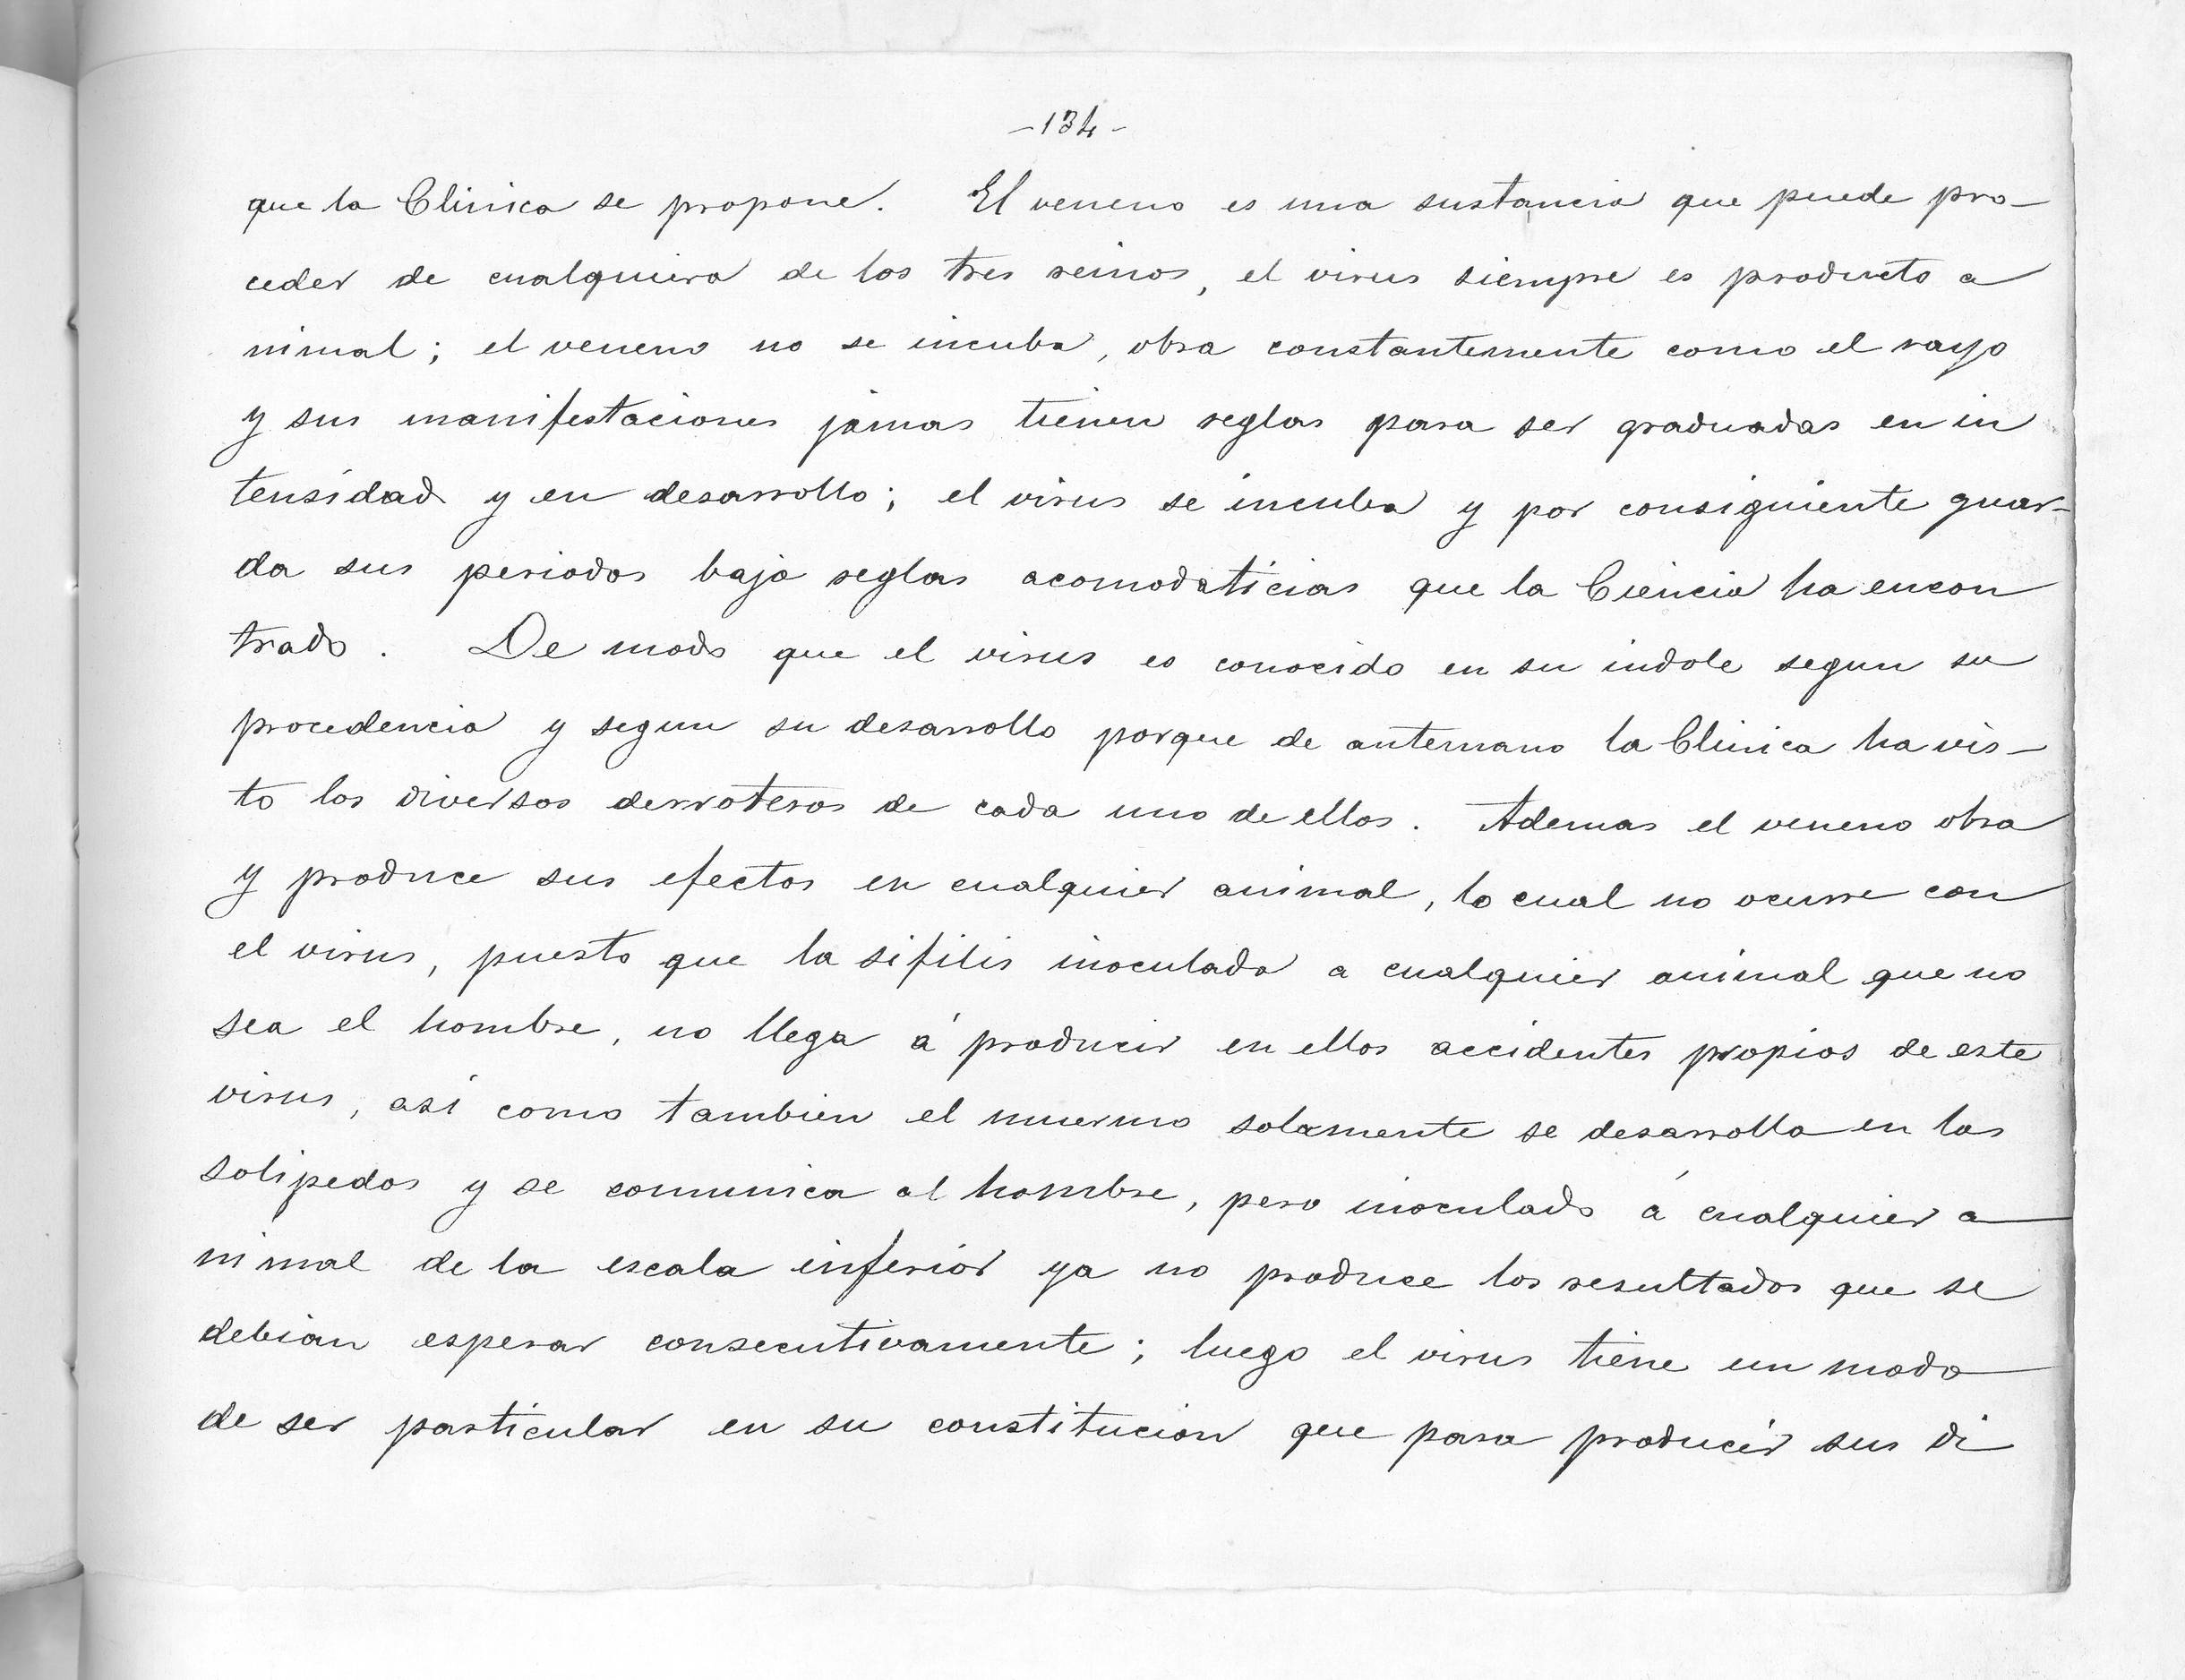 -134-
que la Clinica se propone. El veneno es una sustancia que puede pro-
ceder de cualquiera de los tres reinos, el virus siempre es producto a
nimal; el veneno no se incuba, obra constantemente como el rayo
y sus manifestaciones jamas tienen reglas para ser graduadas en in
tensidad y en desarrollo; el virus se incuba y por consiguiente guar-
da sus periodos bajo reglas acomodaticias que la Ciencia ha encon
trado. De modo que el virus es conocido en su indole segun su
procedencia y segun su desarrollo porque de antemano la Clinica ha vis-
to los diversos derroteros de cada uno de ellos. Ademas el veneno obra
y produce sus efectos en cualquier animal, lo cual no ocurre con
el virus, puesto que la sifilis inoculada a cualquier animal que no
sea el hombre, no llega á producir en ellos accidentes propios de este
virus, así como tambien el muermo solamente se desarrolla en los
solipedos y se comunica al hombre, pero inoculado á cualquier a
nimal de la escala inferior ya no produce los resultados que se
debian esperar consecutivamente; luego el virus tiene un modo
de ser particular en su constitucion que para producir sus di